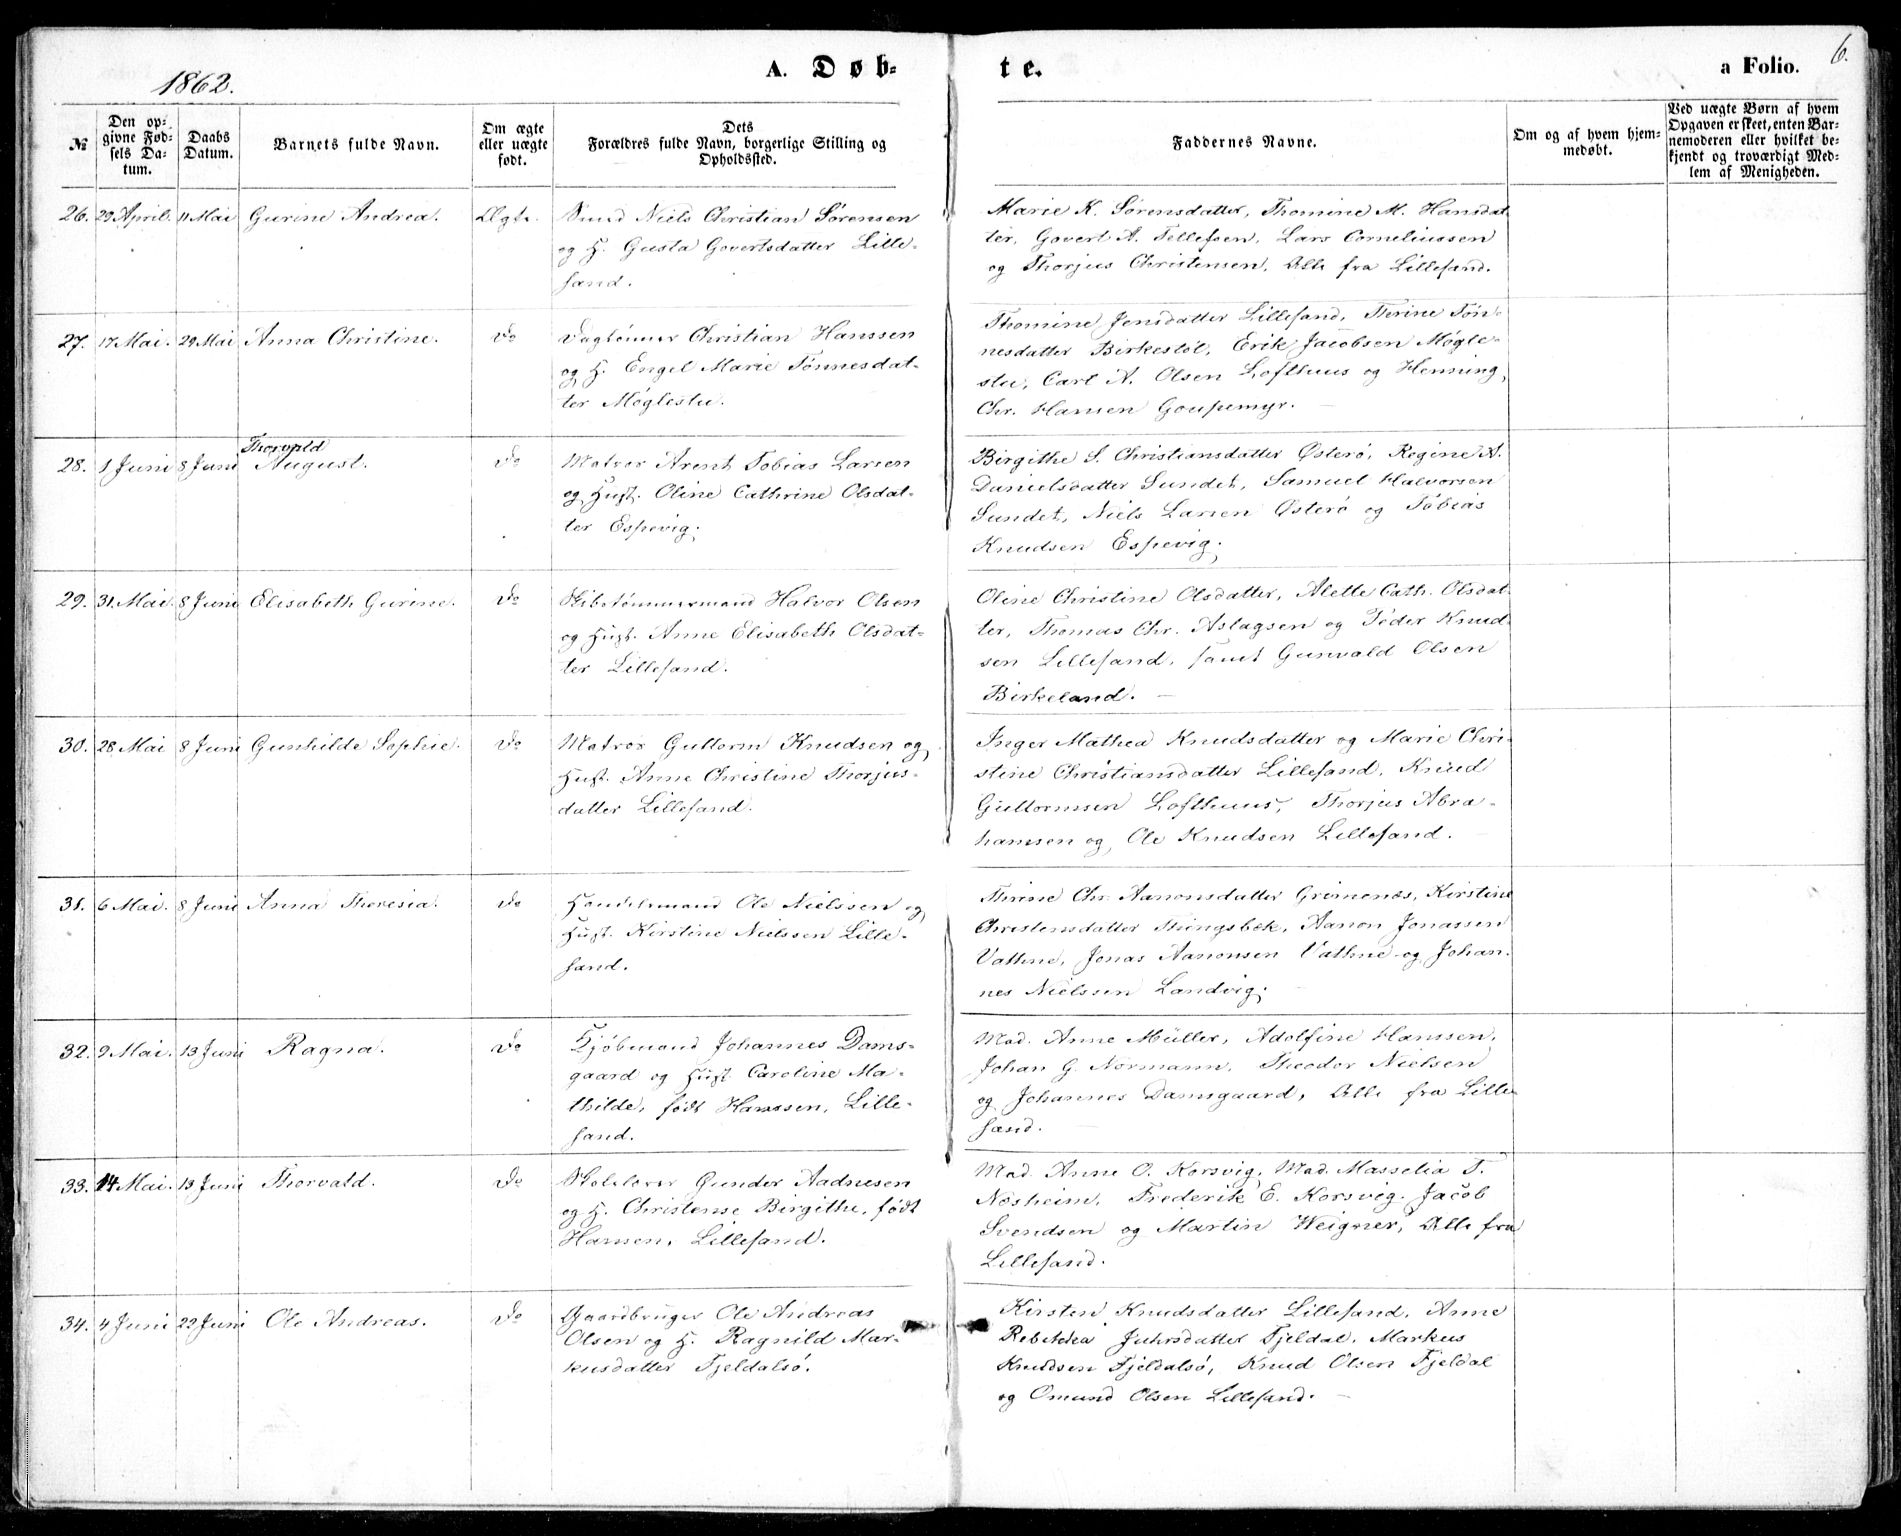 1862.
A. Døb-
te.
a Folio.
6.
№
Den op-
givne Fød-
sels Da-
tum.
Daabs
Datum.
Barnets fulde Navn.
Om ægte
eller uægte
født.
Dets
Forældres fulde Navn, borgerlige Stilling og
Opholdssted.
Faddernes Navne.
Om og af hvem hjem-
medøbt.
Ved uægte Børn af hvem
Opgaven er skeet, enten Bar-
nemoderen eller hvilket be-
kjendt og troværdigt Med-
lem af Menigheden.
26. 29 April. 11 Mai Gurine Andrea. Ægte.
Smed Niels Christian Sørensen
og H. Gusta Govertsdatter Lille-
sand.
Marie K. Sørensdatter, Thomine M. Hansdat-
ter, Govert A. Tellefsen, Lars Corneliussen
og Thorjus Christensen, Alle fra Lillesand.
27. 17 Mai. 29 Mai Anna Christine. Do
Daglønner Christian Hanssen
og H. Engel Marie Tønnesdat-
ter Møglestu.
Thomine Jensdatter Lillesand, Thrine Tøn-
nesdatter Birkestøl, Erik Jacobsen Møgle-
stu, Carl A. Olsen Lofthuus og Henning
Chr. Hansen Goupemyr.
28. 1 Juni 8 Juni Thorvald
August. Do
Matros Arent Tobias Larsen
og Hust. Oline Cathrine Olsdat-
ter Espevig.
Birgithe S. Christiansdatter Østerø, Regine A.
Danielsdatter Sundet, Samuel Halvorsen
Sundet, Niels Larsen Østerø og Tobias
Knudsen Espevig.
29. 31. Mai 8 Juni Elisabeth Gurine. Do
Skibstømmermand Halvor Olsen
og Hust. Anne Elisabeth Olsdat-
ter Lillesand.
Oline Christine Olsdatter, Alette Cath. Olsdat-
ter, Thomas Chr. Aslagsen og Peder Knud-
sen Lillesand, samt Gunvald Olsen
Birkeland.
30. 28 Mai 8 Juni Gunhilde Sophie. Do
Matros Guttorm Knudsen og
Hust. Anne Christine Thorjus-
datter Lillesand.
Inger Mathea Knudsdatter og Marie Chri-
stine Christiansdatter Lillesand, Knud
Guttormsen Lofthuus, Thorjus Abra-
hamsen og Ole Knudsen Lillesand.
31. 6 Mai. 8 Juni Anna Theresia. Do
Handelsmand Ole Nielssen og
Hust. Kirstine Nielssen Lille-
sand.
Thrine Chr. Aanonsdatter Grimenæs, Kirstine
Christensdatter Thingsbek, Aanon Jonassen
Vathne, Jonas Aanonsen Vathne og Johan-
nes Nielssen Landvig.
32. 9 Mai. 13 Juni Ragna. Do
Kjøbmand Johannes Dams-
gaard og Hust. Caroline Ma-
thilde, født Hanssen, Lille-
sand.
Mad. Anne Müller, Adolfine Hanssen,
Johan G. Normann, Theodor Nielsen
og Johannes Damsgaard, Alle fra Lille-
sand.
33. 14 Mai. 13 Juni Thorvald. Do
Skolelærer Gunder Aadnesen
og H. Christense Birgithe, født
Hansen, Lillesand.
Mad. Anne O. Korsvig, Mad. Masselia T.
Næsheim, Frederik E. Korsvig, Jacob
Svendsen og Martin Weigner, Alle fra
Lillesand.
34. 4 Juni 22 Juni Ole Andreas. Do
Gaardbruger Ole Andreas
Olsen og H. Ragnild Mar-
kusdatter Tjeldalsø.
Kirsten Knudsdatter Lillesand, Anne
Rebekka Juhrsdatter Tjeldal, Markus
Knudsen Tjeldalsø, Knud Olsen Tjeldal
og Omund Olsen Lillesand.